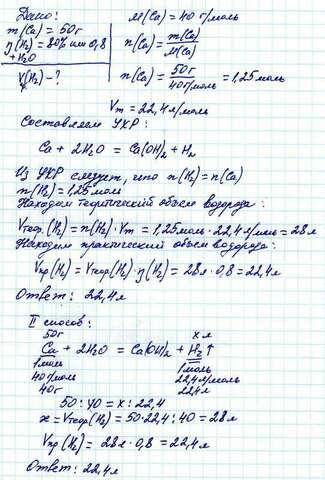 Дано:
m(Ca) = 50г
η(H₂) = 80% или 0,8
+ H₂O
V(H₂) - ?
M(Ca) = 40 г/моль
n(Ca) = m(Ca) / M(Ca)
n(Ca) = 50г / 40г/моль = 1,25 моль
Vm = 22,4 л/моль
Составляем УХР:
Ca + 2H₂O = Ca(OH)₂ + H₂
Из УХР следует, что n(H₂) = n(Ca)
n(H₂) = 1,25 моль
Находим теоретический объем водорода:
Vтеор.(H₂) = n(H₂) · Vm = 1,25 моль · 22,4 л/моль = 28л
Находим практический объем водорода:
Vпр(H₂) = Vтеор(H₂) · η(H₂) = 28л · 0,8 = 22,4л
Ответ: 22,4л
II способ:
50г х л
Ca + 2H₂O = Ca(OH)₂ + H₂↑
1моль 1моль
40г/моль 22,4л/моль
40г 22,4л
50 : 40 = х : 22,4
х = Vтеор(H₂) = 50·22,4 : 40 = 28л
Vпр(H₂) = 28л · 0,8 = 22,4л
Ответ: 22,4л